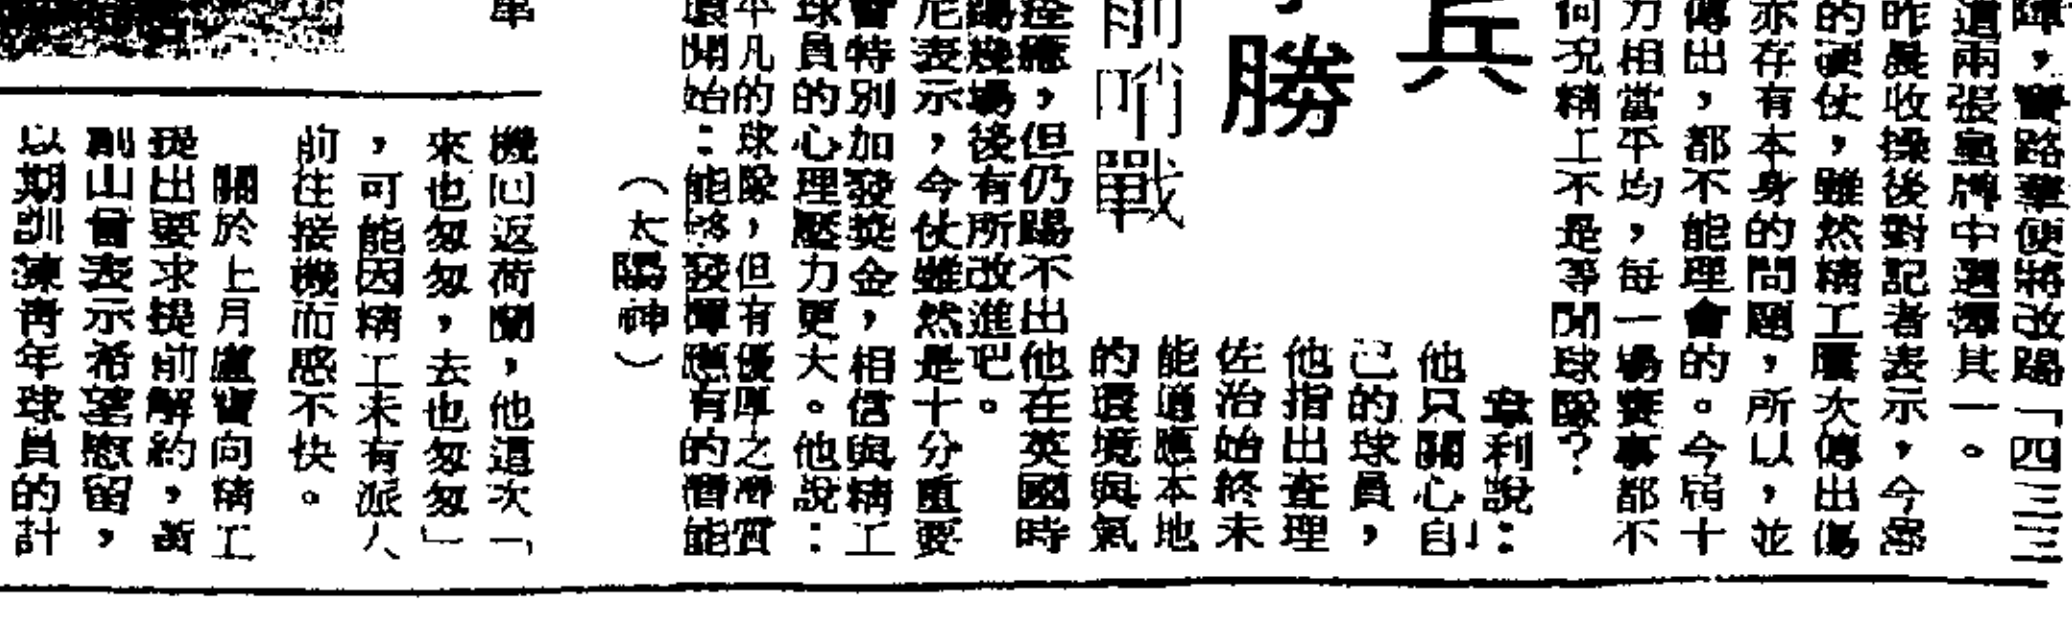 陣，寶路華便將改踢「四三三
這兩張皇牌中選擇其一。
昨晨收操後對記者表示，今
的硬仗，雖然精工屢次傳出傷
亦存有本身的問題，所以，並
傳出，都不能理會的。今屆十
力相當平均，每一場賽事都不
何况精工不是等閒球隊？
兵
勝
前哨戰
韋利說：
他只關心自
己的球員，
他指出查理
佐治始終未
能適應本地
的環境與氣
但仍踢不出他在英國時
踢幾場後有所改進吧。
尼表示，今仗雖然是十分重要
會特別加發獎金，相信與精工
球員的心理壓力更大。他說：
平凡的球隊，但有優厚之
環開始：能夠發揮應有的潛能
（太陽神）
機回返荷蘭，他這次「
來也匆匆，去也匆匆」
，可能因精工未有派人
前往接機而感不快。
關於上月盧寶向精工
提出要求提前解約，黃
創山曾表示希望慰留，
以期訓練青年球員的計